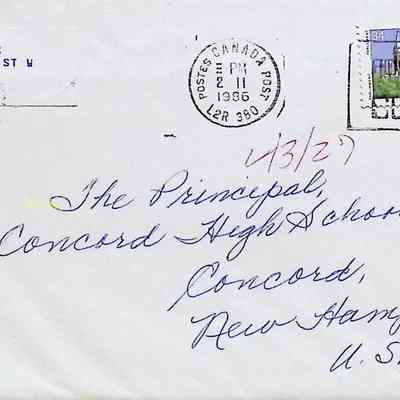 ST W
POSTES CANADA POST
PM
2 11
1986
L2R 3B0
34
43/27
The Principal,
Concord High School
Concord,
New Hamp
U.S.